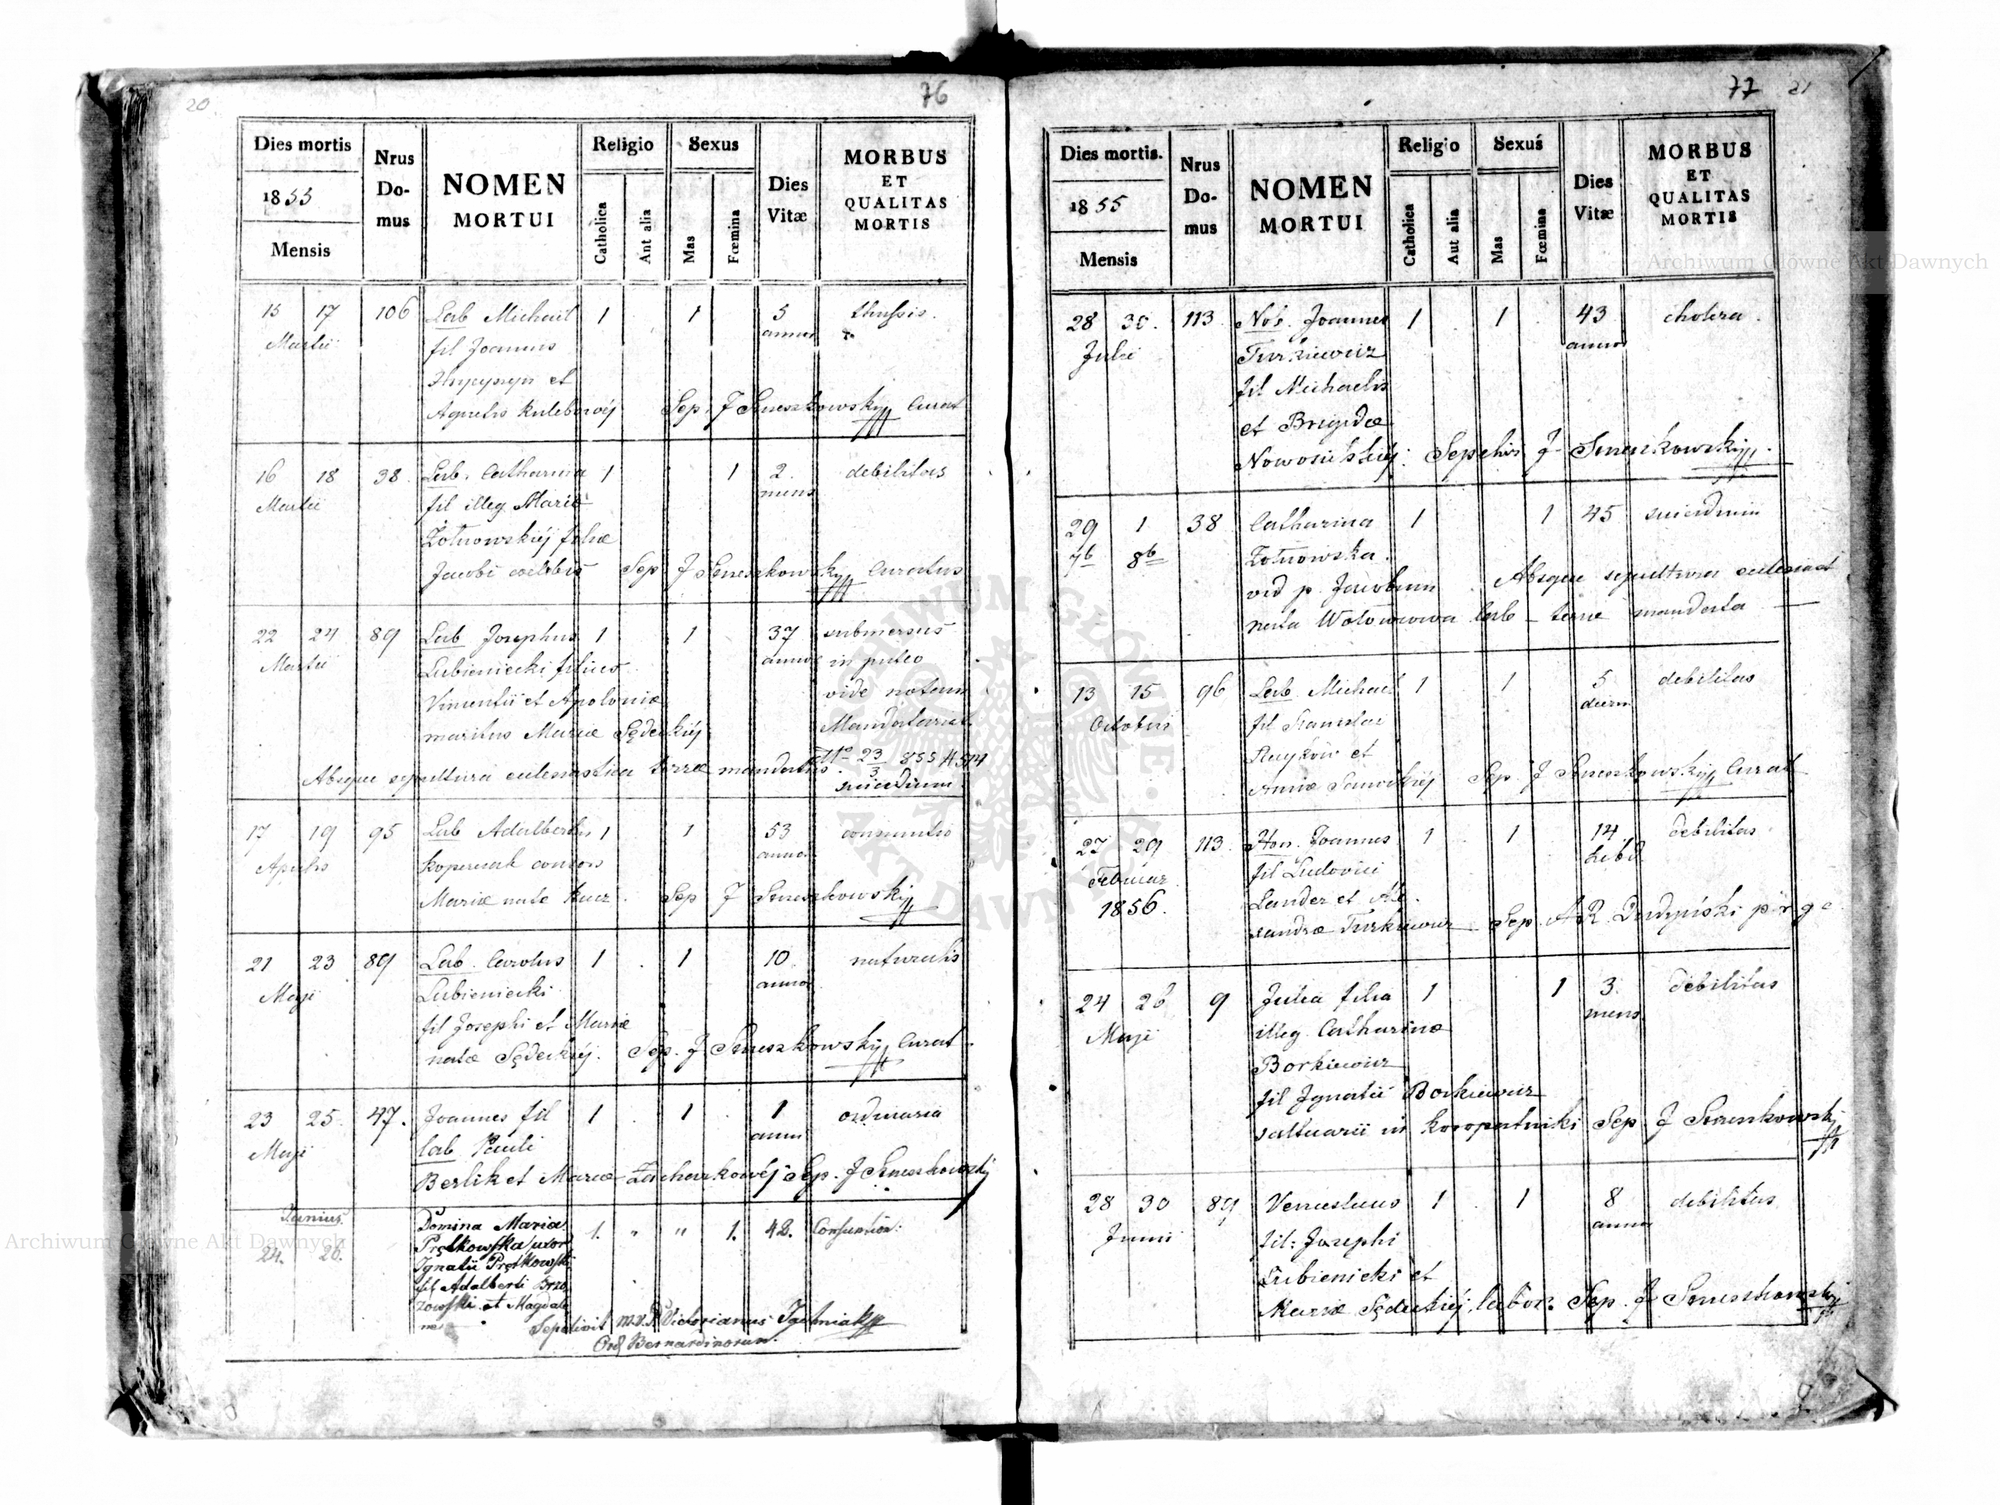 20
76
Dies mortis
1855
Mensis
Nrus Do-mus
NOMEN MORTUI
Religio
Catholica
Aut alia
Sexus
Mas
Fœmina
Dies Vitæ
MORBUS ET QUALITAS MORTIS
15 17 106 Lab Michael 1 . 1 5 thussis.
Martii fil Joannis annor
et
Agnetis Kuleborój Sep. J Smeszkowskij Curat
16 18 38. Lab. Catharina 1 . . 1 2. debilitas
Martii fil illeg. Mariæ mens
Żołnowskiéj filiæ
Jacobi Sep J Smeszkowskij Curatus
22 24 89 Lab Josephus 1 1 37 submersus
Martii Lubieniecki filius annor in puteo
Vincentii et Apoloniæ vide notam
maritus Mariæ Sędeckiéj Mandatariat
Absque sepultura eclesiastica terræ mandatus. No 23/3 855 H 514
suicidium.
17 19 95 Lab Adalbertus 1 1 53 consumtio
Aprilis Koperwak consors annor
Mariæ nate Kucz. Sep J Smeszkowskij
21 23 89 Lab. Carolus 1 . 1 10. naturalis
Maji Lubieniecki annor
fil Josephi et Mariæ
natæ Sędeckiéj. Sep. J Smeszkowskij Curat.
23 25. 47. Joannes fil 1 . 1 . 1 ordinaria
Maji lab Pauli anni
Berlik et Mariæ Zacharkowéj Sep. J Smeszkowskij
Junius. Domina Maria
24. 26. Prętkowska uxor 1. " " 1. 42. Consumtion:
Ignatii Prętkowski
fil Adalberti Brzo
zowski et Magdale
næ Sepelivit m.v.P. Victorianus
Ord Bernardinorum.
77
21
Dies mortis.
1855
Mensis
Nrus Do-mus
NOMEN MORTUI
Religio
Catholica
Aut alia
Sexus
Mas
Fœmina
Dies Vitæ
MORBUS ET QUALITAS MORTIS
28 30. 113 Nob. Joannes 1 . 1 . 43 cholera.
Julii Turkiewicz annor
fil Michaelis
et Brigidæ
Nowosielskiéj. Sepelivi J Smeszkowskij.
29 1 38 Catharina 1 1 45 suicidium
7b 8b Żołnowska.
vid p. Jacobum . Absque sepultura eclesiast
nata Wołowowa lab - terræ mandata —
13 15 96 Lab. Michael 1 1 5 debilitas
Octobris fil Stanislai dierum
et
Annæ Sawickiéj Sep. J Smeszkowskij Curat
27 29 113. Hon. Joannes 1 1 . 14 debilitas.
Februar. fil Ludovici hebd
1856. Lander et Ale-
xandræ Turkiewicz Sep.
24 26 9 Julia filia 1 1 3. debilitas
Maji illeg. Catharinæ mens
Borkiewicz
fil Ignatii Borkiewicz
saltuarii in Koropatniki Sep J Smeszkowskij
28 30 89 Venceslaus 1 . 1 8 debilitas
Junii fil: Josephi annor
Lubieniecki et
Mariæ Sędeckiéj, labor. Sep. J Smeszkowskij
Archiwum Główne Akt Dawnych
Archiwum Główne Akt Dawnych
ARCHIWUM GŁÓWNE AKT DAWNYCH